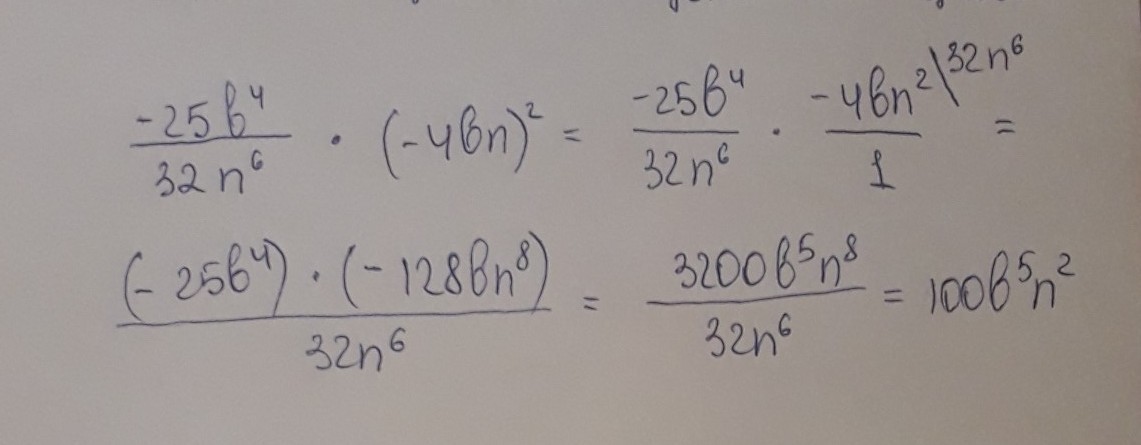 -25b⁴/32n⁶ · (-4bn)² = -25b⁴/32n⁶ · -4bn²\32n⁶/1 =
(-25b⁴) · (-128bn⁸)/32n⁶ = 3200b⁵n⁸/32n⁶ = 100b⁵n²